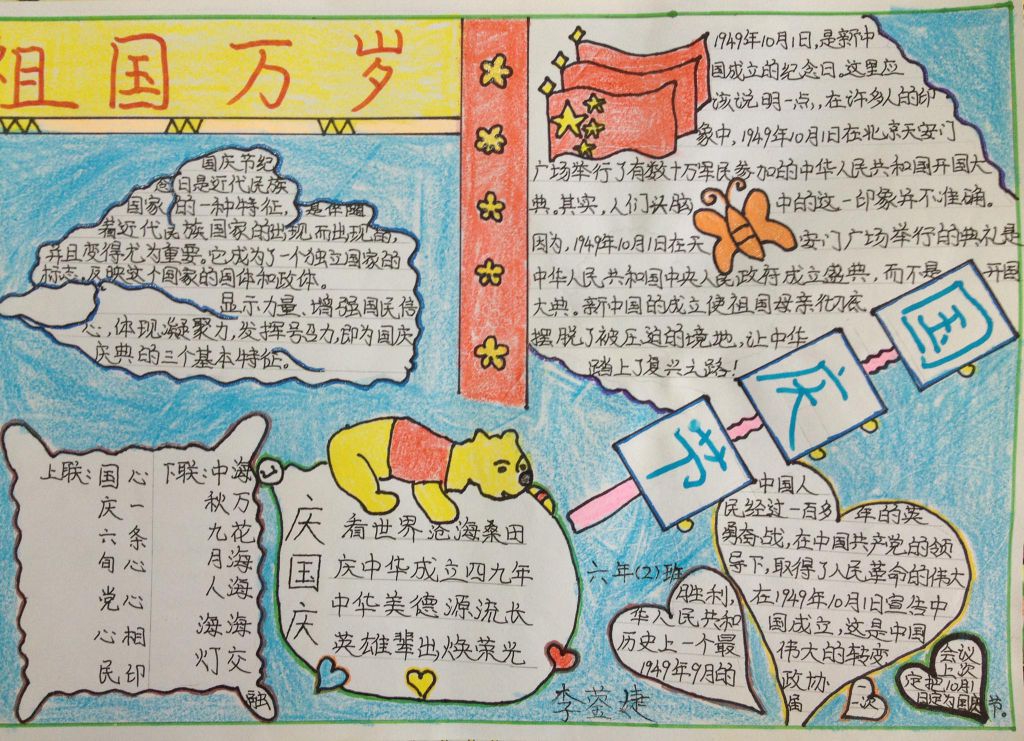 祖国万岁
国庆节纪
念日是近代民族
国家的一种特征,是伴随
着近代民族国家的出现而出现的,
并且变得尤为重要。它成为了一个独立国家的
标志,反映这个国家的国体和政体。
显示力量、增强国民信
心,体现凝聚力,发挥号召力,即为国庆
庆典的三个基本特征。
1949年10月1日,是新中
国成立的纪念日。这里应
该说明一点,,在许多人的印
象中,1949年10月1日在北京天安门
广场举行了有数十万军民参加的中华人民共和国开国大
典。其实,人们头脑中的这一印象并不准确。
因为,1949年10月1日在天安门广场举行的典礼是
中华人民共和国中央人民政府成立盛典,而不是开国
大典。新中国的成立使祖国母亲彻底
摆脱了被压迫的境地,让中华
踏上了复兴之路!
国庆节
上联:国庆六旬党心民心一条心心相印
下联:中秋九月人海灯海万花海海交融
庆国庆
看世界沧海桑田
庆中华成立四九年
中华美德源流长
英雄辈出焕荣光
六年(2)班
李蓥婕
中国人
民经过一百多年的英
勇奋战,在中国共产党的领
导下,取得了人民革命的伟大
胜利,
在1949年10月1日宣告中
华人民共和
国成立,这是中国
历史上一个最
伟大的转变
1949年9月的
政协
届
一
次
会议
上次
定把10月1
日定为国庆节。